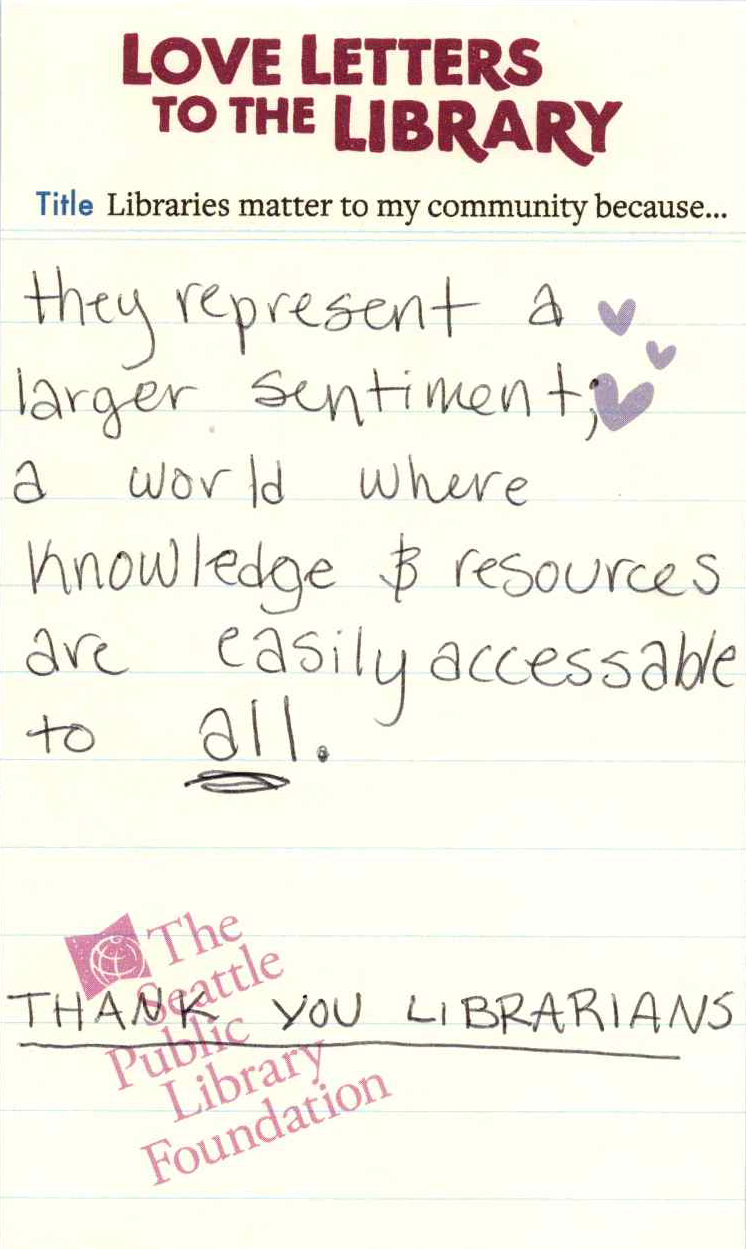 LOVE LETTERS
TO THE LIBRARY
Title Libraries matter to my community because...
they represent a
larger sentiment;
a world where
knowledge & resources
are easily accessable
to all.
The
Seattle
Public
Library
Foundation
THANK YOU LIBRARIANS